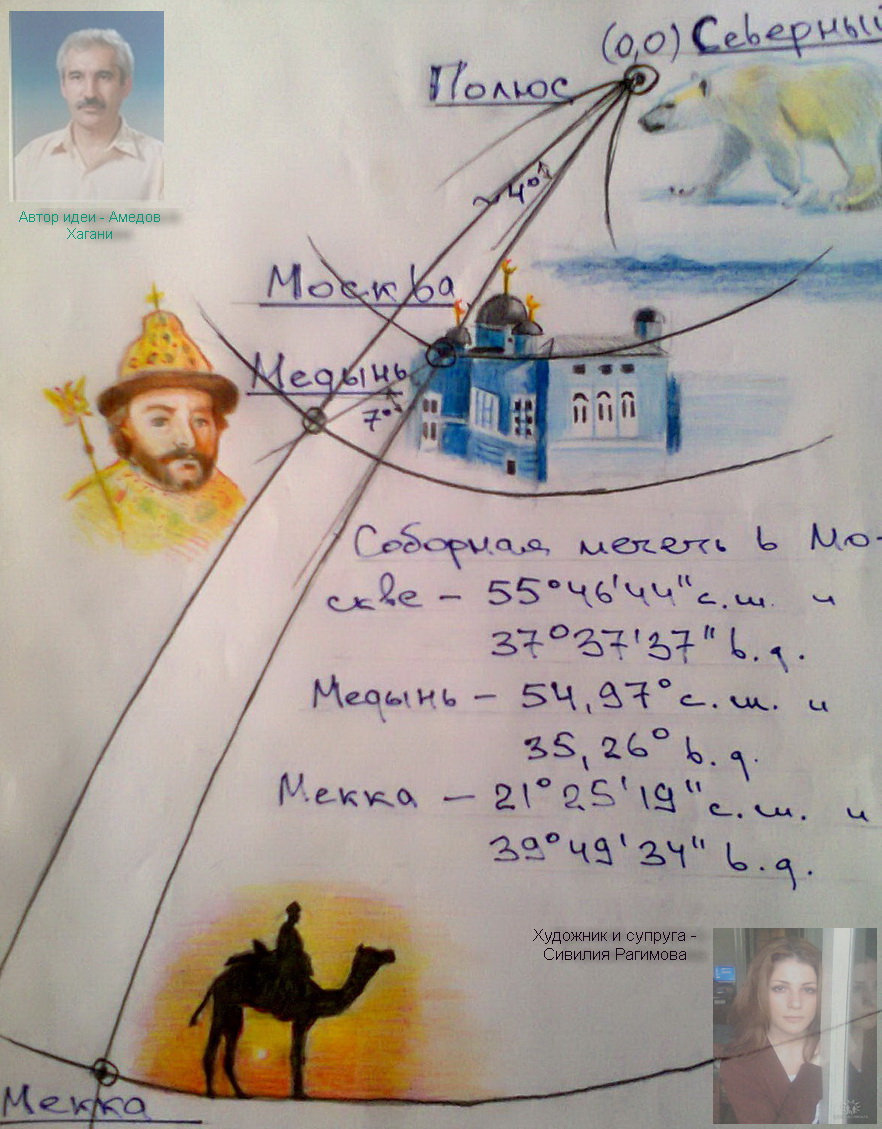 (0,0) Северный
Полюс
~4°
Автор идеи - Амедов
Хагани
Москва
Медынь
7°
Соборная мечеть в Мо-
скве - 55°46'44" с.ш. и
37°37'37" в.д.
Медынь - 54,97° с.ш. и
35,26° в.д.
Мекка - 21°25'19" с.ш. и
39°49'34" в.д.
Художник и супруга -
Сивилия Рагимова
Мекка